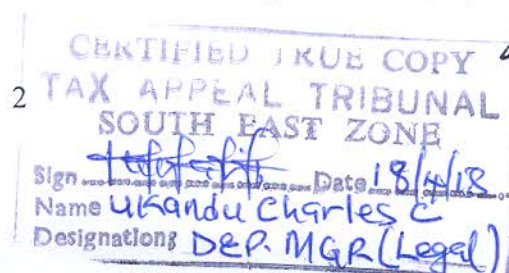 CERTIFIED TRUE COPY
2 TAX APPEAL TRIBUNAL
SOUTH EAST ZONE
Sign Date 18/4/18
Name Ukandu Charles C
Designation: DEP. MGR (Legal)